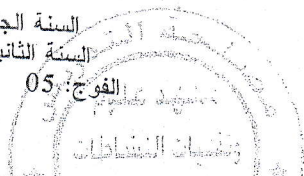 السنة الج
السنة الثاني
الفوج: 05
معهد علوم
وتقنيات النشاطات